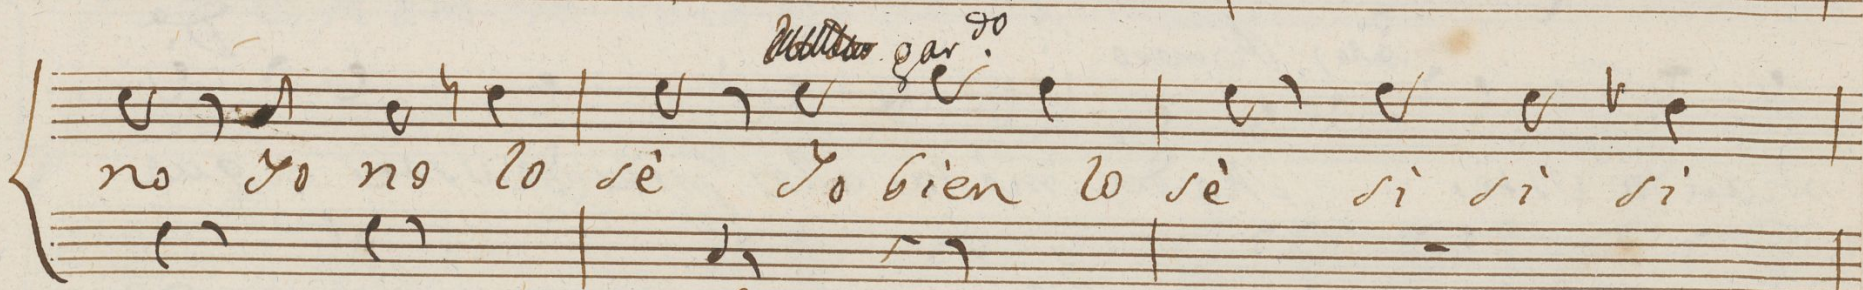 gar.do
no Yo no lo sè Yo bien lo sè sì sì sì